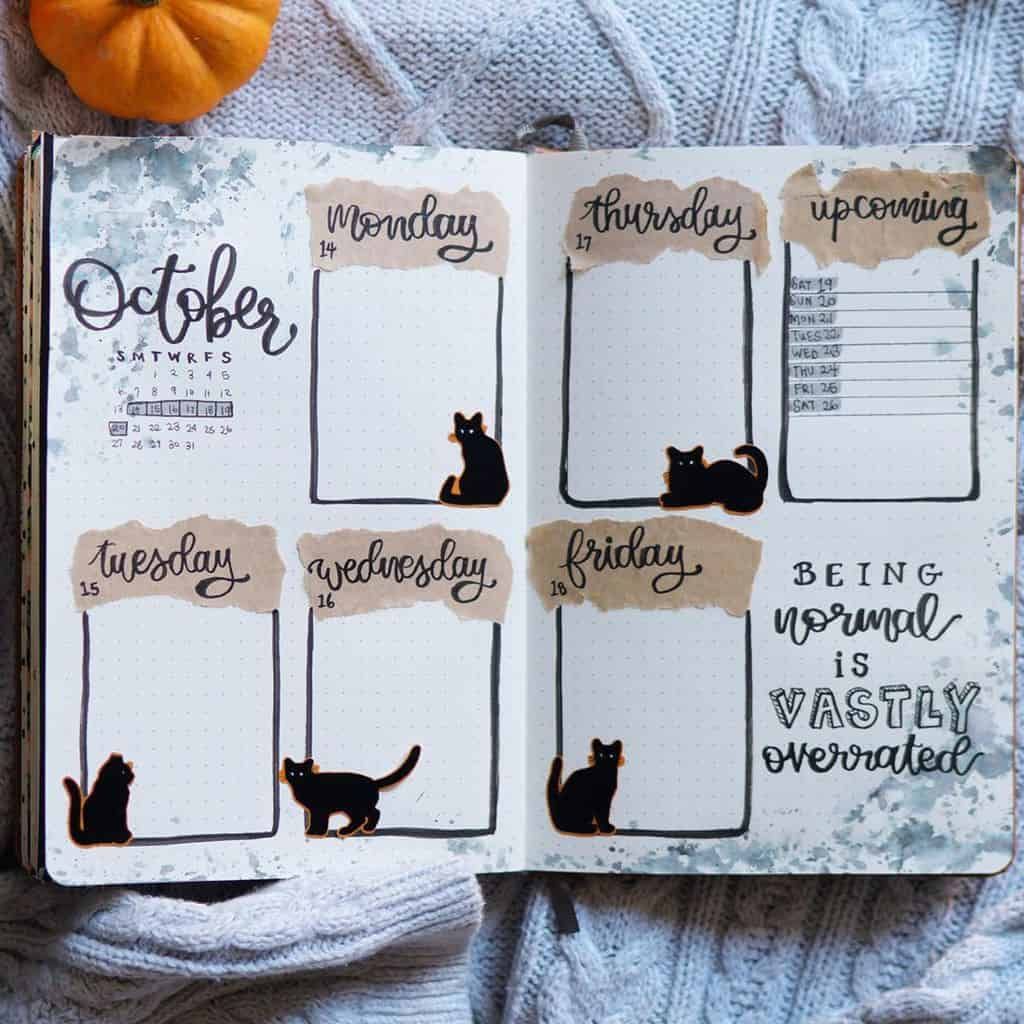 October
S M T W R F S
1 2 3 4 5
6 7 8 9 10 11 12
13 14 15 16 17 18 19
20 21 22 23 24 25 26
27 28 29 30 31
monday
14
tuesday
15
wednesday
16
thursday
17
friday
18
upcoming
SAT 19
SUN 20
MON 21
TUES 22
WED 23
THU 24
FRI 25
SAT 26
BEING
normal
is
VASTLY
overrated